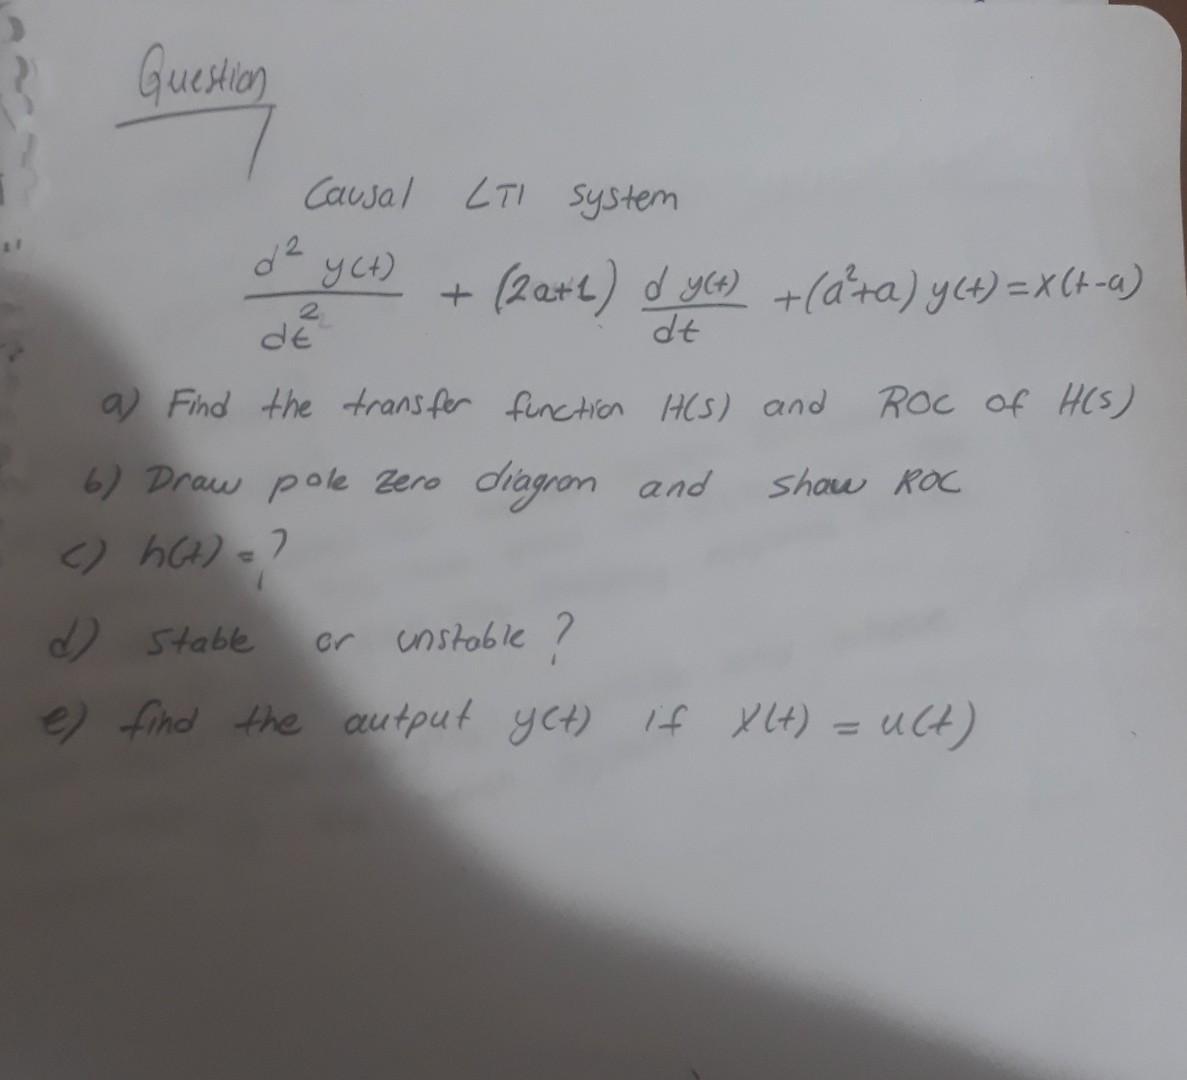 Question
Causal LTI system
d² y(t)/dt² + (2a+1) d y(t)/dt + (a²+a) y(t) = x(t-a)
a) Find the transfer function H(s) and ROC of H(s)
b) Draw pole zero diagram and show ROC
c) h(t) = ?
d) stable or unstable ?
e) find the output y(t) if x(t) = u(t)